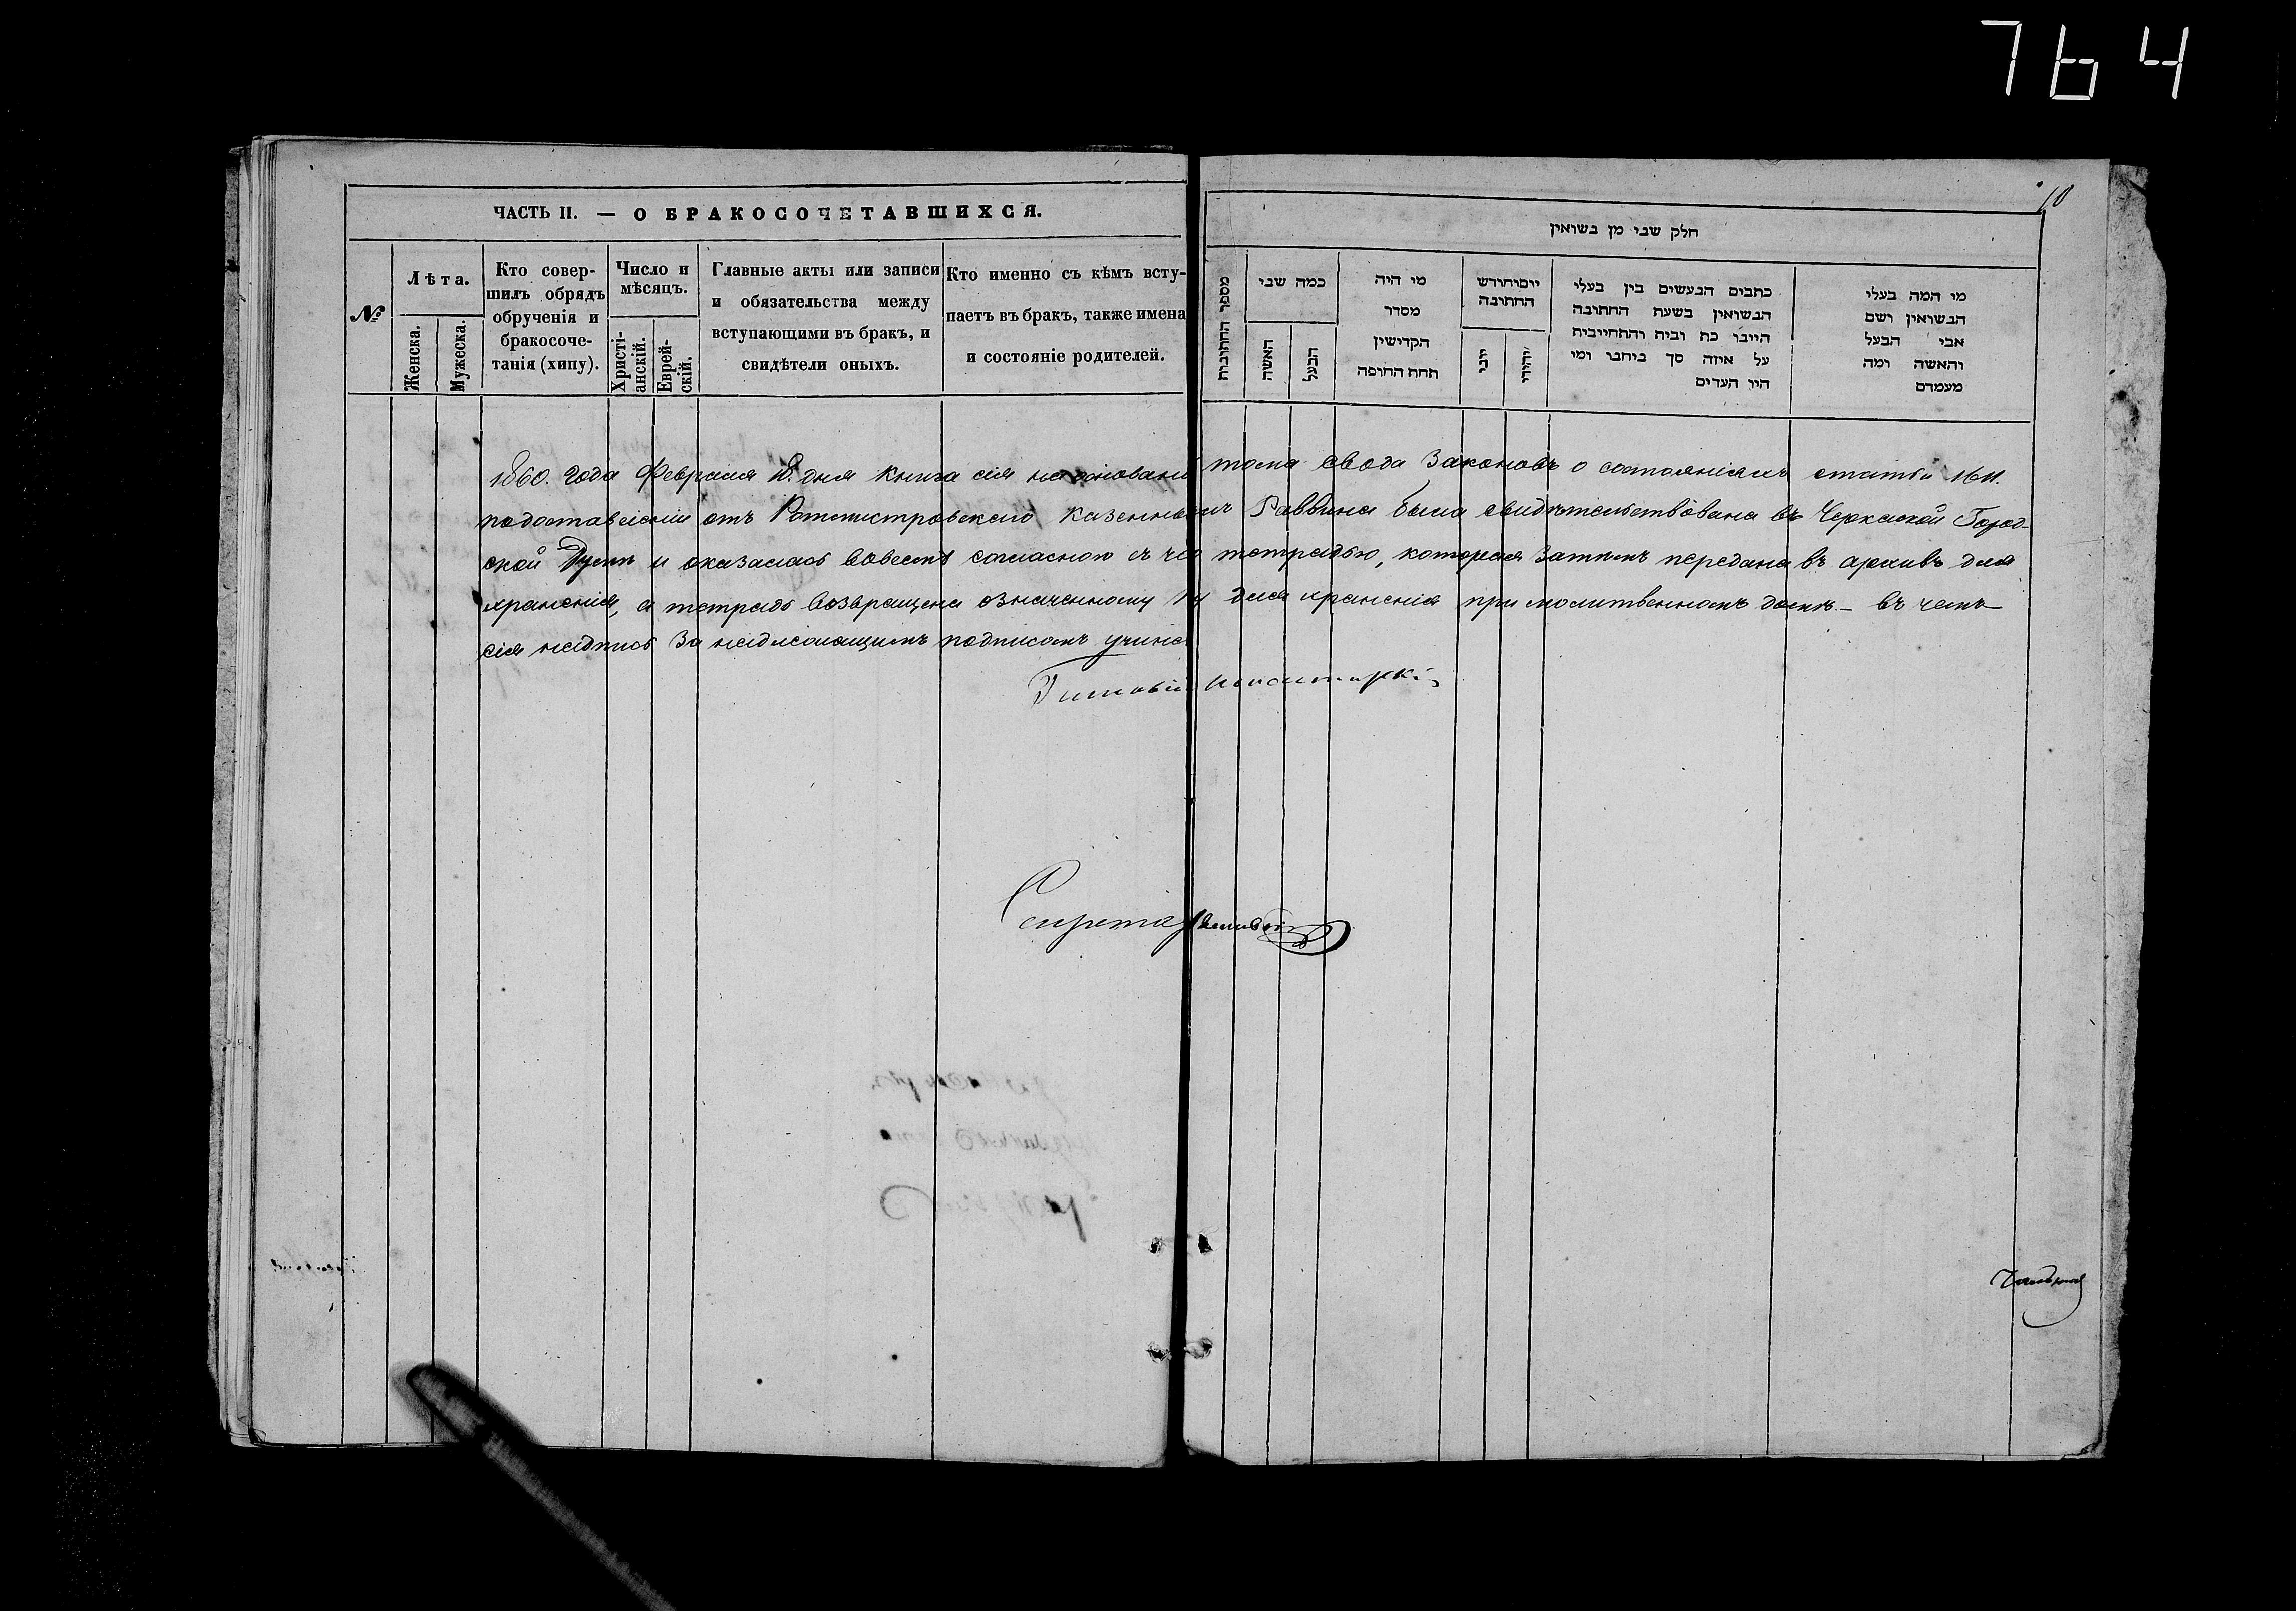 764
10
ЧАСТЬ II. — О БРАКОСОЧЕТАВШИХСЯ.
№
Лѣта.
Женска.
Мужеска.
Кто совер-
шилъ обрядъ
обрученія и
бракосоче-
танія (хипу).
Число и
мѣсяцъ.
Христі-
анскій.
Еврей-
скій.
Главные акты или записи
и обязательства между
вступающими въ бракъ, и
свидѣтели оныхъ.
Кто именно съ кѣмъ всту-
паетъ въ бракъ, также имена
и состояніе родителей.
חלק שני מן נשואין
מספר החתונות
כמה שני
האשה
הבעל
מי היה
מסדר
הקדישין
תחת החופה
יוםיחודש
החתונה
יוני
יהודי
כתבים הנעשים בין בעלי
הנשואין בשעת החתונה
היינו כח ובית והתחייבית
על איזה סך ביחנו ומי
היו העדים
מי המה בעלי
הנשואין ושם
אבי הבעל
והאשה ומה
מעמדם
1860. года Февраля 18. дня книга сія на основані тома свода законовъ о состояніяхъ статьи 1611.
подоставленіи отъ Ротмистровскаго казенна Раввина была свидѣтельствована въ Черкаской Город-
ской Думѣ и оказалась вовсемъ согласною съ тетрадью, которая затѣмъ передана въ архивъ для
храненія, а тетрадь возвращена означенному для храненія при молитвенномъ домѣ — въ чемъ
сія надпись за надлежащимъ подписомъ учине